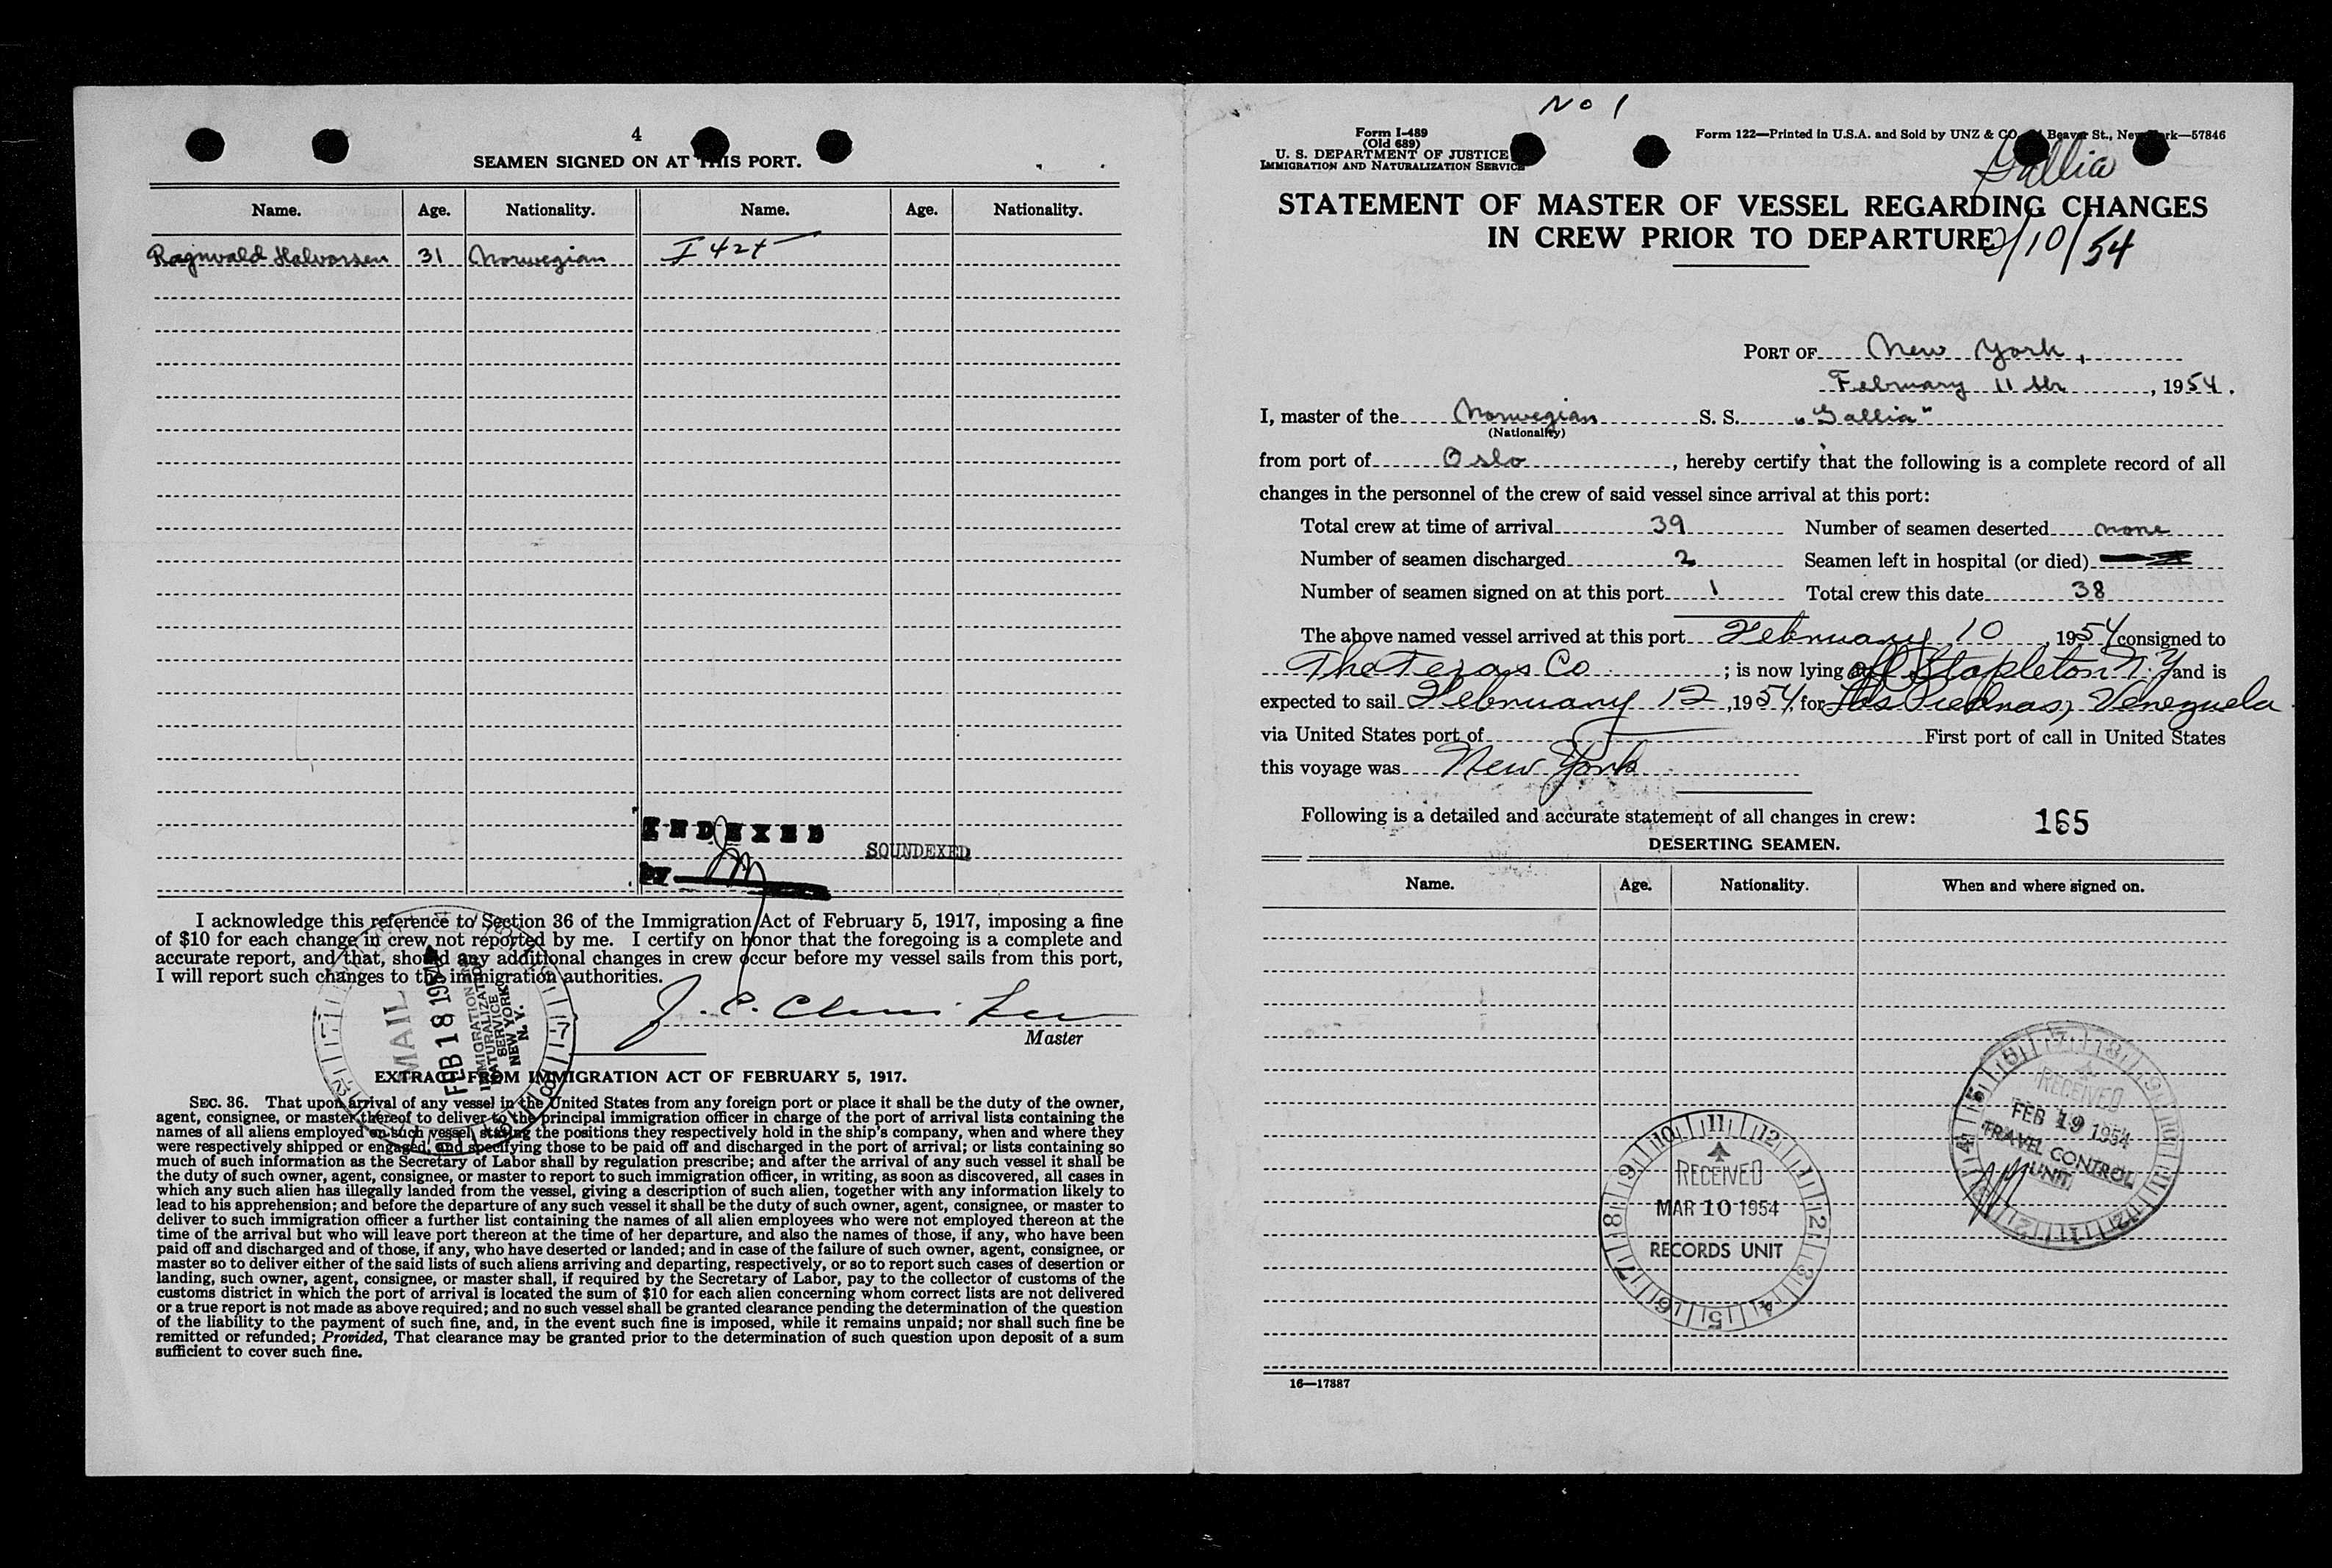 4
SEAMEN SIGNED ON AT THIS PORT.
Name. Age. Nationality. Name. Age. Nationality.
Ragnvald Halvorsen 31 Norwegian I 424
INDEXED
SOUNDEXED
BY
I acknowledge this reference to Section 36 of the Immigration Act of February 5, 1917, imposing a fine
of $10 for each change in crew not reported by me. I certify on honor that the foregoing is a complete and
accurate report, and that, should any additional changes in crew occur before my vessel sails from this port,
I will report such changes to the immigration authorities.
J. C.
Master
MAIL
FEB 18 1954
IMMIGRATION
NATURALIZATION
SERVICE
NEW YORK
N. Y.
EXTRACT FROM IMMIGRATION ACT OF FEBRUARY 5, 1917.
SEC. 36. That upon arrival of any vessel in the United States from any foreign port or place it shall be the duty of the owner,
agent, consignee, or master thereof to deliver to the principal immigration officer in charge of the port of arrival lists containing the
names of all aliens employed on such vessel, stating the positions they respectively hold in the ship's company, when and where they
were respectively shipped or engaged, and specifying those to be paid off and discharged in the port of arrival; or lists containing so
much of such information as the Secretary of Labor shall by regulation prescribe; and after the arrival of any such vessel it shall be
the duty of such owner, agent, consignee, or master to report to such immigration officer, in writing, as soon as discovered, all cases in
which any such alien has illegally landed from the vessel, giving a description of such alien, together with any information likely to
lead to his apprehension; and before the departure of any such vessel it shall be the duty of such owner, agent, consignee, or master to
deliver to such immigration officer a further list containing the names of all alien employees who were not employed thereon at the
time of the arrival but who will leave port thereon at the time of her departure, and also the names of those, if any, who have been
paid off and discharged and of those, if any, who have deserted or landed; and in case of the failure of such owner, agent, consignee, or
master so to deliver either of the said lists of such aliens arriving and departing, respectively, or so to report such cases of desertion or
landing, such owner, agent, consignee, or master shall, if required by the Secretary of Labor, pay to the collector of customs of the
customs district in which the port of arrival is located the sum of $10 for each alien concerning whom correct lists are not delivered
or a true report is not made as above required; and no such vessel shall be granted clearance pending the determination of the question
of the liability to the payment of such fine, and, in the event such fine is imposed, while it remains unpaid; nor shall such fine be
remitted or refunded; Provided, That clearance may be granted prior to the determination of such question upon deposit of a sum
sufficient to cover such fine.
No 1
Form I-489
(Old 689)
U. S. DEPARTMENT OF JUSTICE
IMMIGRATION AND NATURALIZATION SERVICE
Form 122—Printed in U.S.A. and Sold by UNZ & CO. Beaver St., New York—57846
Gallia
STATEMENT OF MASTER OF VESSEL REGARDING CHANGES
IN CREW PRIOR TO DEPARTURE
2/10/54
PORT OF New York,
February 11 th, 1954.
I, master of the Norwegian S. S. "Gallia"
(Nationality)
from port of Oslo, hereby certify that the following is a complete record of all
changes in the personnel of the crew of said vessel since arrival at this port:
Total crew at time of arrival 39 Number of seamen deserted none
Number of seamen discharged 2 Seamen left in hospital (or died)
Number of seamen signed on at this port 1 Total crew this date 38
The above named vessel arrived at this port February 10, 1954 consigned to
The Texas Co; is now lying off Stapleton N.Y and is
expected to sail February 12, 1954, for Las Piedras, Venezuela
via United States port of First port of call in United States
this voyage was New York
Following is a detailed and accurate statement of all changes in crew:
165
DESERTING SEAMEN.
Name. Age. Nationality. When and where signed on.
RECEIVED
FEB 19 1954
TRAVEL CONTROL
UNIT
RECEIVED
MAR 10 1954
RECORDS UNIT
16—17887